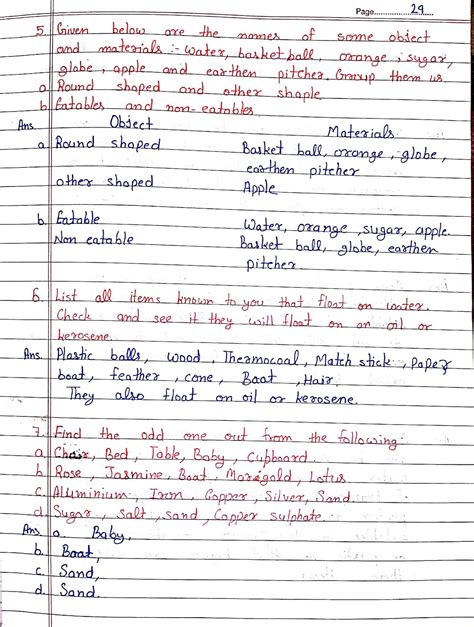 Page 29
5. Given below are the names of some object
and materials :- water, basket ball, orange, sugar,
globe, apple and earthen pitcher. Group them us
a. Round shaped and other shaple
b. Eatables and non-eatables
Ans. Object Materials
a. Round shaped Basket ball, orange, globe,
earthen pitcher
other shaped Apple
b. Eatable Water, orange, sugar, apple.
Non eatable Basket ball, globe, earthen
pitcher.
6. List all items known to you that float on water.
Check and see it they will float on an oil or
kerosene.
Ans. Plastic balls, wood, Thermocoal, Match stick, Paper
boat, feather, cone, Boat, Hair.
They also float on oil or kerosene.
7. Find the odd one out from the following:
a. Chair, Bed, Table, Baby, Cupboard.
b. Rose, Jasmine, Boat, Marigold, Lotus
c. Aluminium, Iron, Copper, Silver, Sand.
d. Sugar, salt, sand, Copper sulphate.
Ans a. Baby,
b. Boat,
c. Sand,
d. Sand.